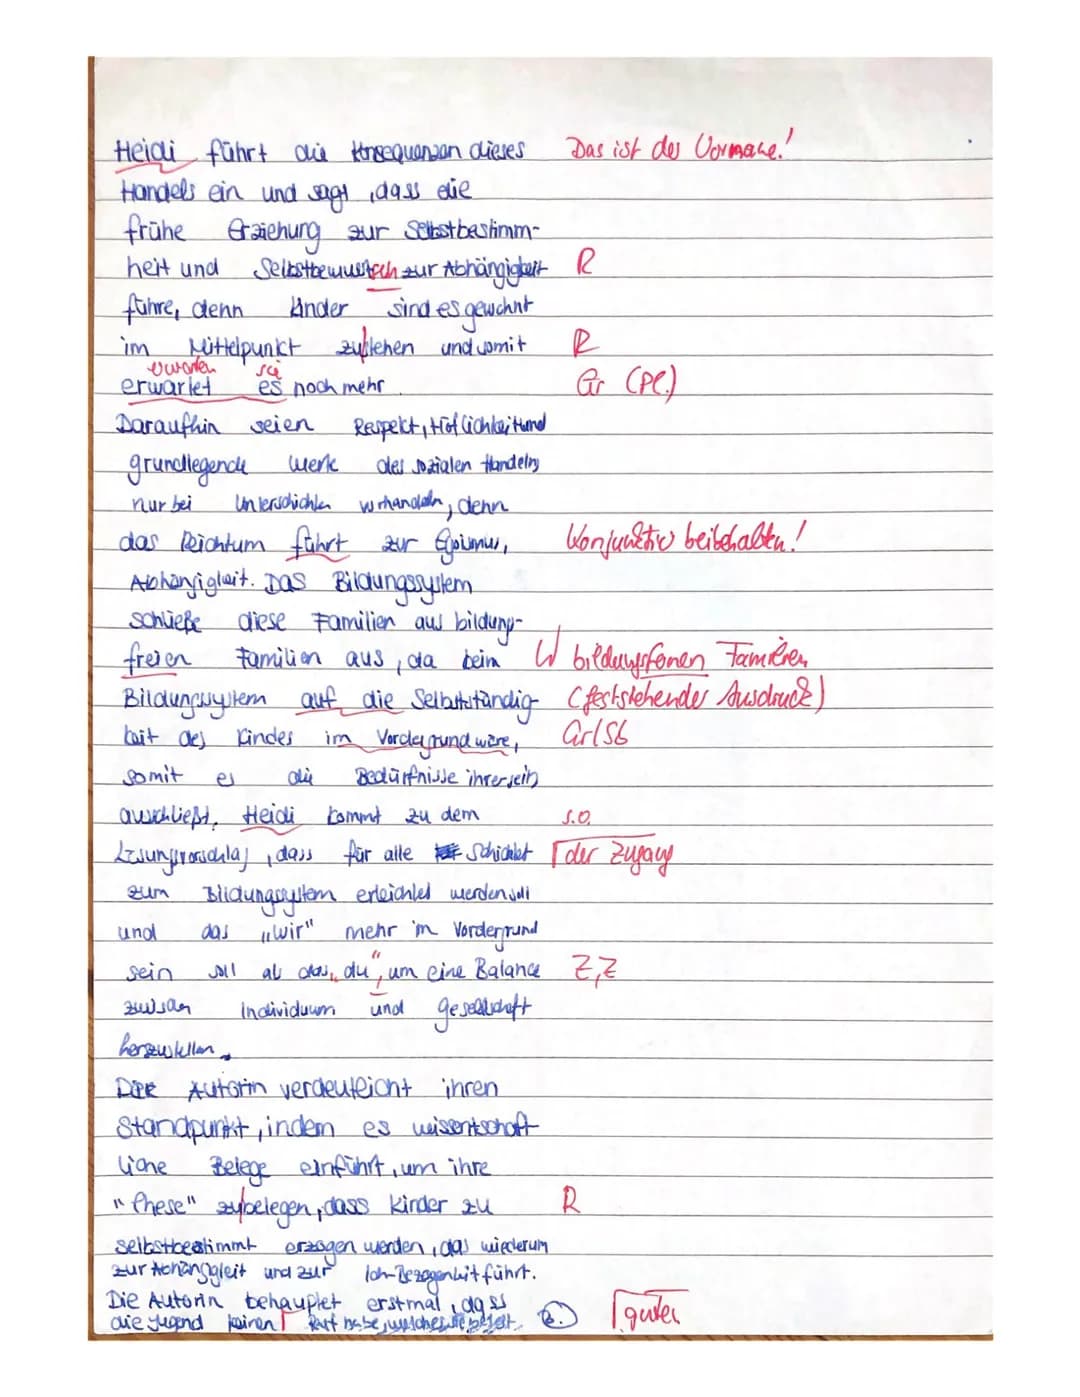 Heidi führt die Konsequenzen dieses Das ist der Vorname!
Handels ein und sagt, dass die
frühe Erziehung zur Selbstbestimm-
heit und Selbstbewusstsch zur Abhängigkeit R
führe, denn Kinder sind es gewohnt
im Mittelpunkt zustehen und somit R
erwarten sie
erwartet es noch mehr Gr (Pl.)
Daraufhin seien Respekt, Höflichkeit und
grundlegende Werte des sozialen Handelns
nur bei Unterschichten vorhanden, denn
das Reichtum führt zur Egoismus, Konjunktiv beibehalten!
Abhängigkeit. Das Bildungssystem
schließe diese Familien aus bildungs-
freien Familien aus, da beim W bildungsfernen Familien
Bildungssystem auf die Selbstständig- (feststehender Ausdruck)
keit des Kindes im Vordergrund wäre, Gr/Sb
somit es die Bedürfnisse ihrerseits
ausschließt. Heidi kommt zu dem s.o.
Lösungsvorschlag, dass für alle Schichten der Zugang
zum Bildungssystem erleichtet werden soll
und das „wir" mehr im Vordergrund
sein soll als das „du", um eine Balance Z,Z
zwischen Individuum und Gesellschaft
herzustellen.
Die Autorin verdeutlicht ihren
Standpunkt, indem es wissentschaft
liche Belege einführt, um ihre
"These" zubelegen, dass Kinder zu R
selbstbestimmt erzogen werden, das wiederum
zur Abhängigkeit und zur Ich-Bezogenheit führt.
Die Autorin behauptet erstmal, dass
die Jugend keinen Ruf habe, welches B. guten